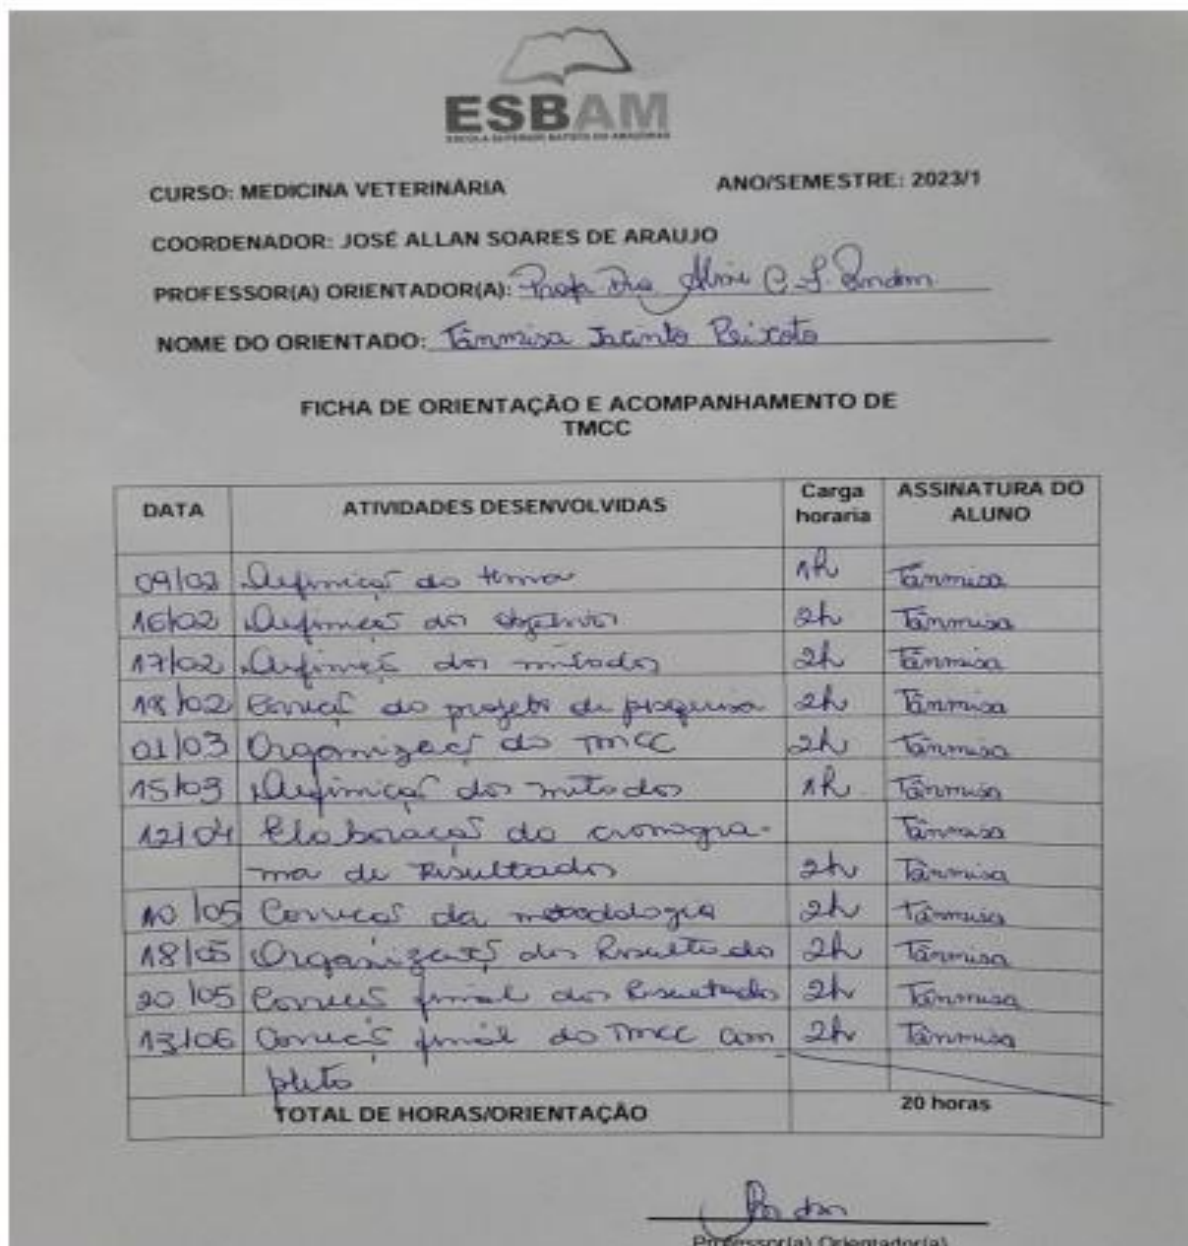 ESBAM
ESCOLA SUPERIOR BATISTA DO AMAZONAS
CURSO: MEDICINA VETERINÁRIA ANO/SEMESTRE: 2023/1
COORDENADOR: JOSÉ ALLAN SOARES DE ARAUJO
PROFESSOR(A) ORIENTADOR(A): Profa Dra C. S.
NOME DO ORIENTADO: Tânmisa Jacinto Peixoto
FICHA DE ORIENTAÇÃO E ACOMPANHAMENTO DE
TMCC
DATA ATIVIDADES DESENVOLVIDAS Carga horaria ASSINATURA DO ALUNO
09/02 Definição do tema 1h Tânmisa
16/02 Definição dos objetivos 2h Tânmisa
17/02 Definição dos métodos 2h Tânmisa
18/02 Correção do projeto de pesquisa 2h Tânmisa
01/03 Organização do TMCC 2h Tânmisa
15/03 Definição dos métodos 1h Tânmisa
12/04 Elaboração do cronogra- Tânmisa
ma de Resultados 2h Tânmisa
10/05 Correção da metodologia 2h Tânmisa
18/05 Organização dos Resultados 2h Tânmisa
20/05 Correção final dos Resultados 2h Tânmisa
13/06 Correção final do TMCC com 2h Tânmisa
pleto
TOTAL DE HORAS/ORIENTAÇÃO 20 horas
Professor(a) Orientador(a)